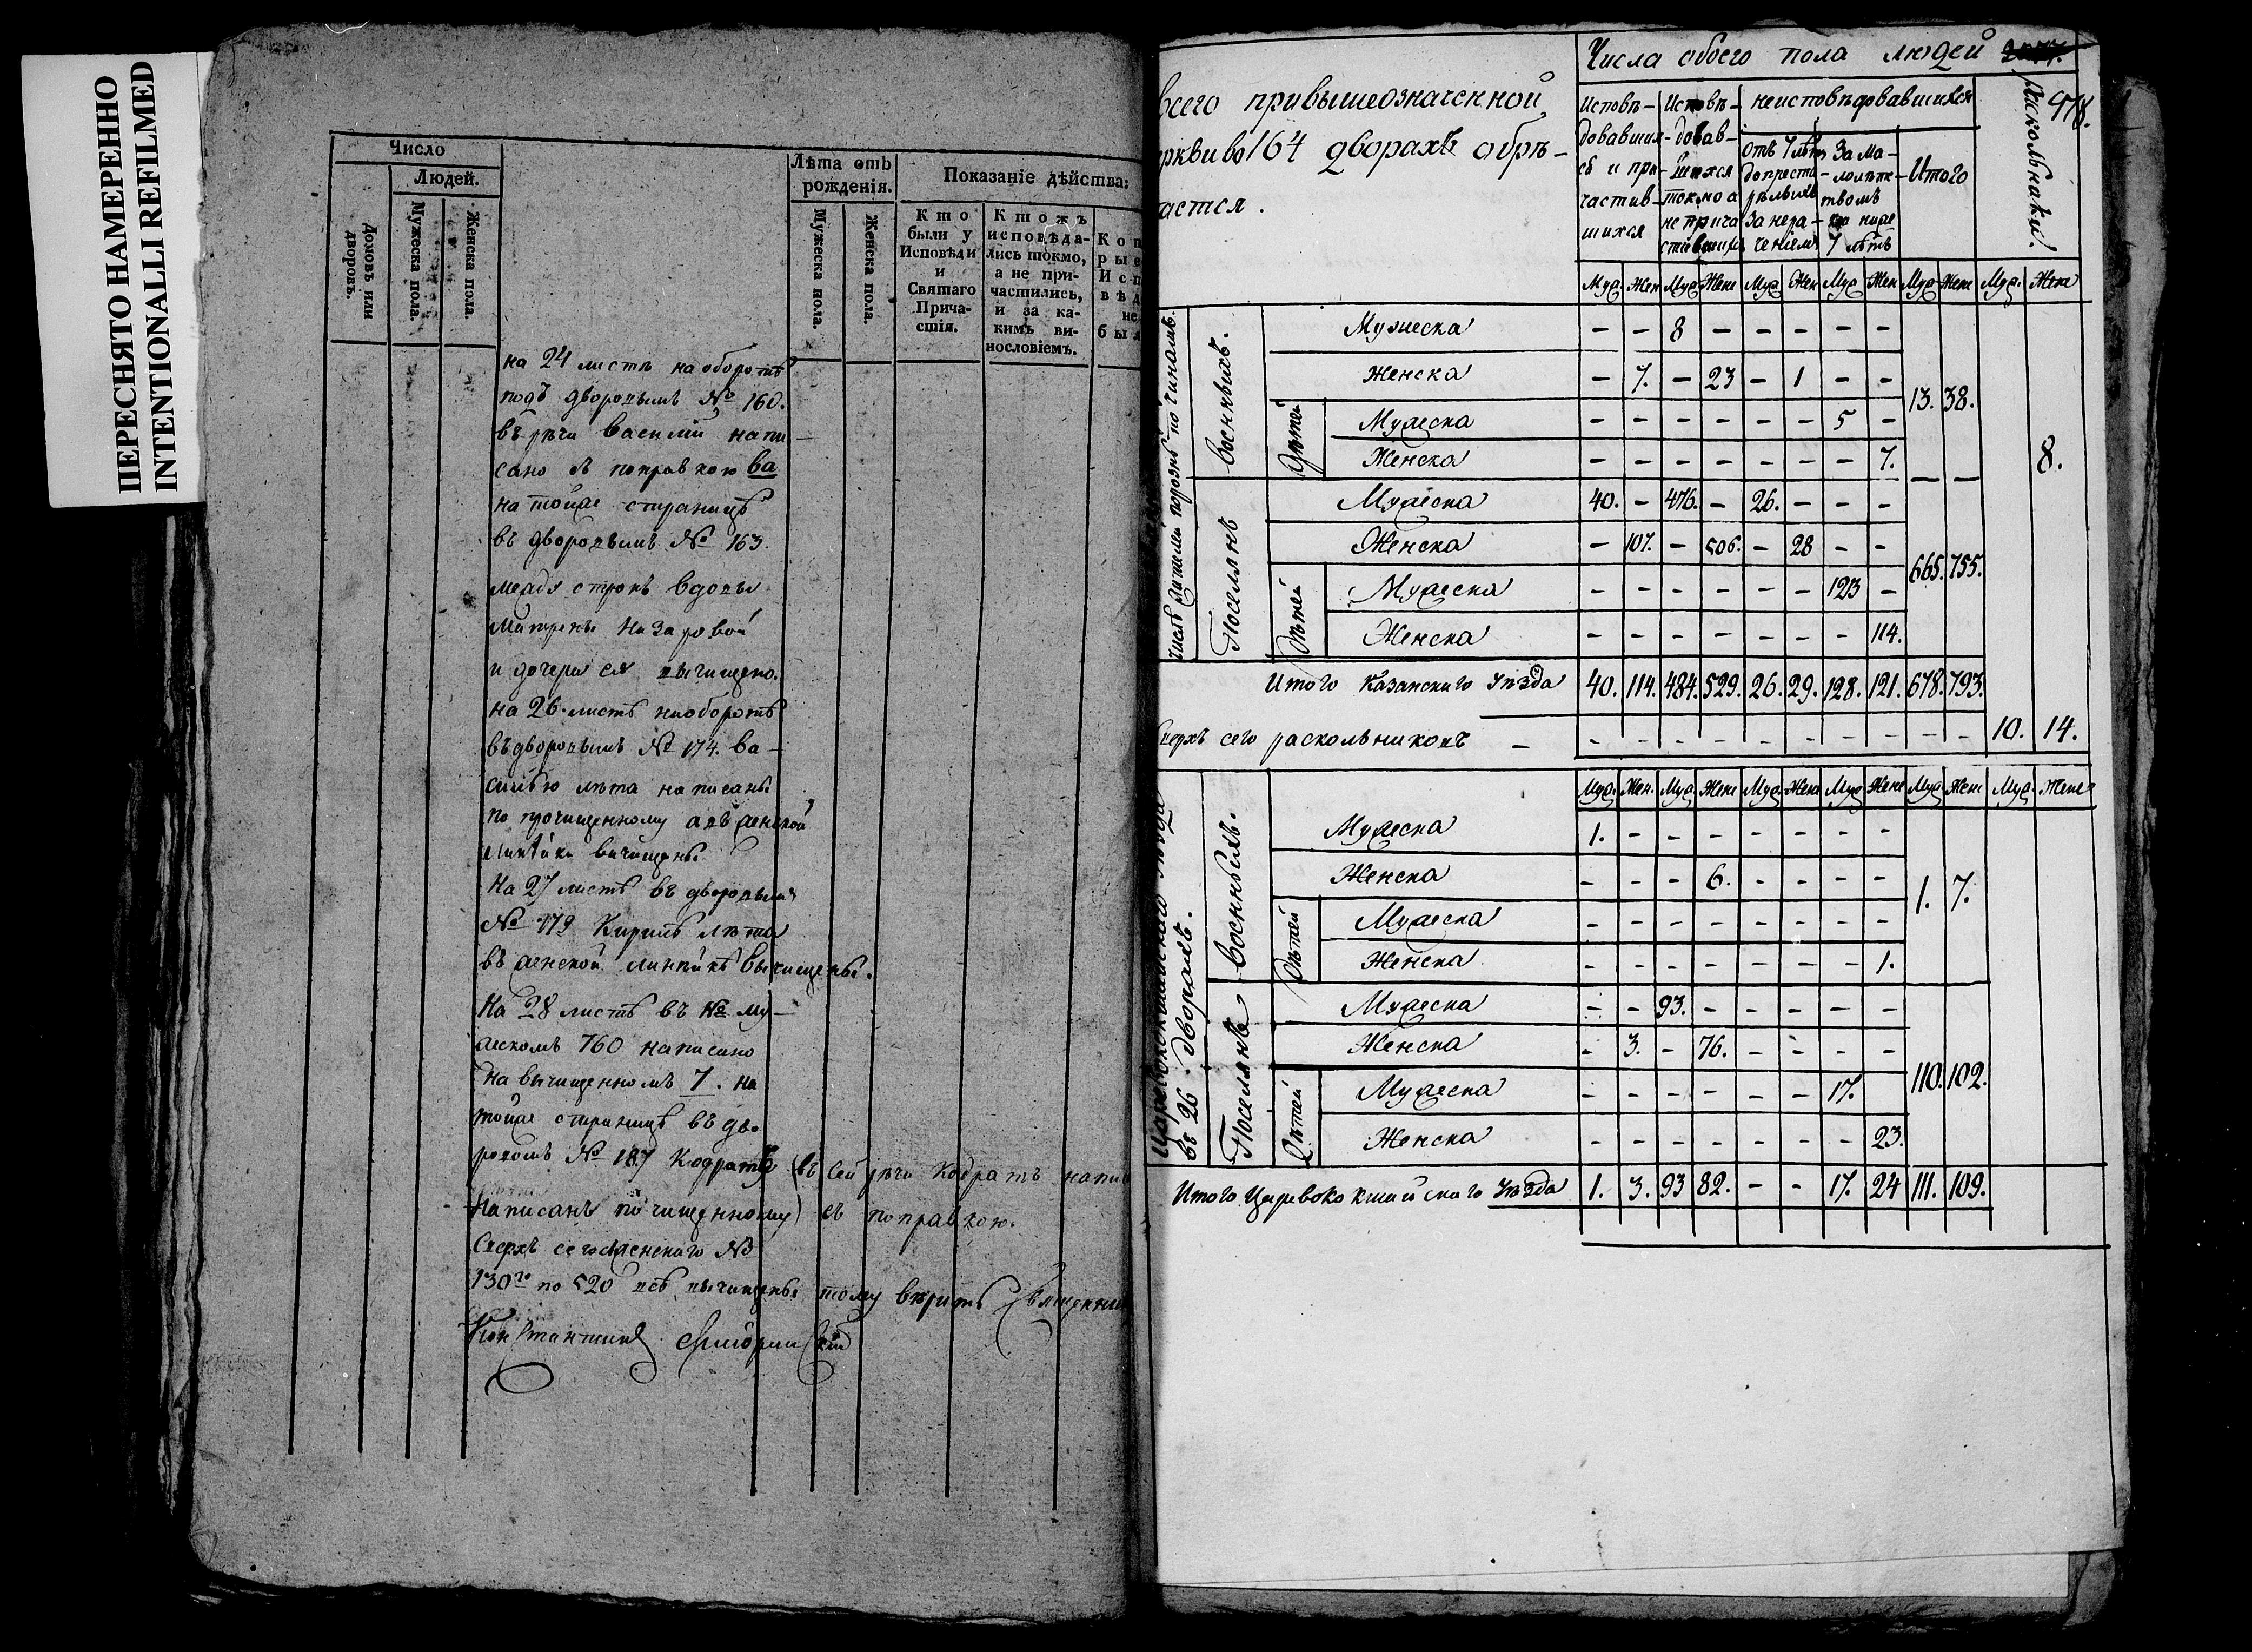 ПЕРЕСНЯТО НАМЕРЕННО
INTENTIONALLI REFILMED
Число
Людей.
Домовъ или дворовъ.
Мужеска пола.
Женска пола.
Лѣта отъ рожденія.
Мужеска пола.
Женска пола.
Показаніе дѣйства:
Кто были у Исповѣди и Святаго Прича-стія.
Ктожъ исповѣда-лись токмо, а не при-частились, и за ка-кимъ ви-нословіемъ.
Кот
рые
Исп
вѣд
не
был
на 24 листѣ наоборотѣ
подъ дворовымъ № 160.
въ рѣчи Василій напи-
сано съ поправкою ва
на тойже страницѣ
въ дворовымъ № 163.
между строкъ вдовы
Матрены Назаровой
и дочери ея вычищено.
на 26 листѣ наоборотѣ
въ дворовымъ № 174. Ва-
силью лѣта написаны
по прочищенному а въ женской
вычищены
На 27 листѣ въ дворовымъ
№ 179 Кирилѣ лѣта
въ женской линѣйкѣ вычищены.
На 28 листѣ въ № му-
жескомъ 760 написано
на вычищенномъ 7. на
тойже страницѣ въ дво
ровомъ № 187 Кодратъ (въ сей рѣчи Кодратъ напи
Написанъ по чищенному) съ поправкою.
Сверхъ сего женскаго №
130го по 520 всѣ вычищены тому вѣрить
Константинъ
всего привышеозначенной
ркви во 164 дворахъ обрѣ-
тается.
Числа обоего пола людей
478.
Исповѣ-довавшихся и при-частив-шихся
Исповѣ-довав-шихся токмо а не прича стившихся
неисповѣдовавшихся
отъ 7 лѣтъ до престарѣлыхъ за нера-ченіемъ
За ма-лолѣтствомъ ниже 7 лѣтъ
Итого
раскольники.
Муж. Жен Муж Жене Муж Жен Муж Жен Муж Жене Муж. Жене
Число жителей порознь по чинамъ.
Военныхъ.
Мужеска – – 8 – – – – –
Женска – 7. – 23 – 1 – –
13. 38.
Дѣтей
Мужеска – – – – – – 5 –
Женска – – – – – – – 7.
8.
Поселянъ
Мужеска 40. – 476. – 26. – – –
Женска – 107. – 506. – 28 – –
665. 755.
Дѣтей
Мужеска – – – – – – 123 –
Женска – – – – – – – 114.
Итого Казанскаго Уѣзда 40. 114. 484. 529. 26. 29. 128. 121. 678. 793.
сверхъ сего раскольниковъ – – – – – – – – – – – 10. 14.
Муж. Жен. Муж Жене Муж Жен Муж Жене Муж Жене Муж. Жене
Царевококшайскаго Уѣзда
въ 26. дворахъ.
Военныхъ.
Мужеска 1. – – – – – – –
Женска – – – 6. – – – –
1. 7.
Дѣтей
Мужеска – – – – – – – –
Женска – – – – – – – 1.
Поселянъ
Мужеска – – 93. – – – – –
Женска – 3. – 76. – – – –
110. 102.
Дѣтей
Мужеска – – – – – – 17. –
Женска – – – – – – – 23.
Итого Царевококшайскаго Уѣзда 1. 3. 93 82. – – 17. 24 111. 109.